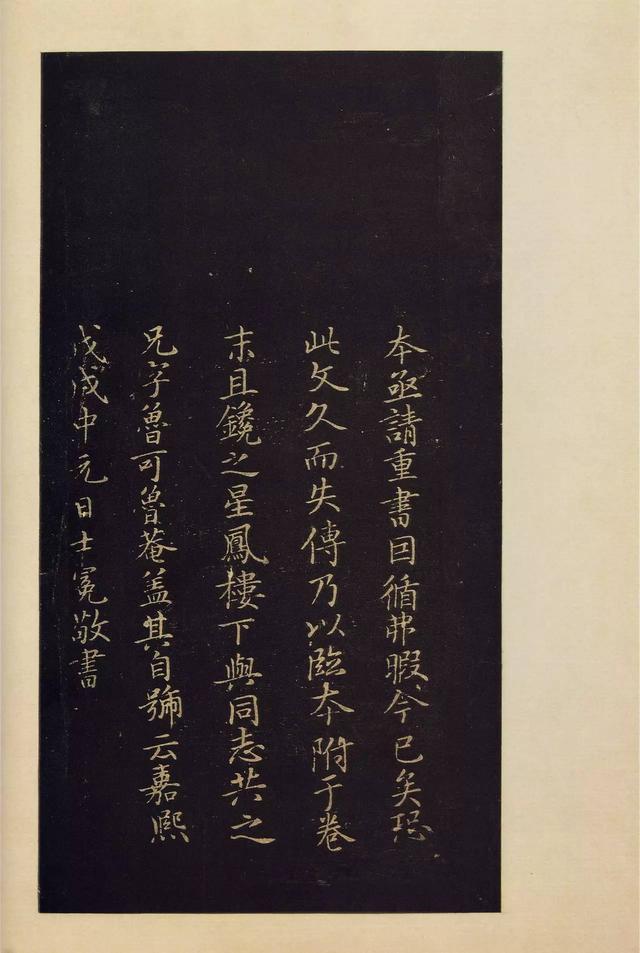 本亟請重書因循弗暇今已矣恐
此文久而失傳乃以臨本附于卷
末且鑱之星鳳樓下與同志共之
兄字魯可魯菴蓋其自號云嘉熙
戊戌中元日士冕敬書